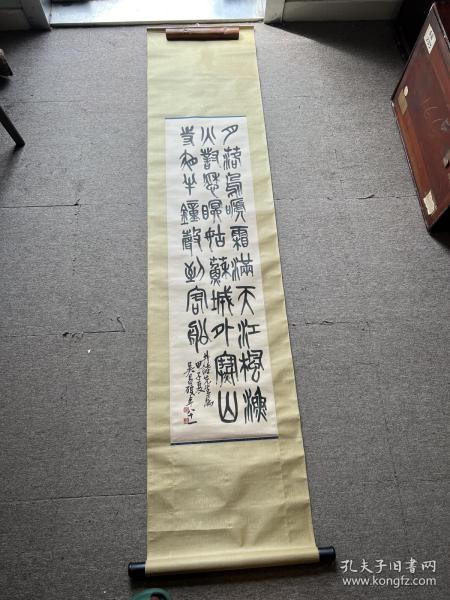 月落烏嗁霜滿天江楓漁
火對愁眠姑蘇城外寒山
寺夜半鐘聲到客船
先生屬
甲子夏
吳昌碩年八十一
孔夫子旧书网
www.kongfz.com